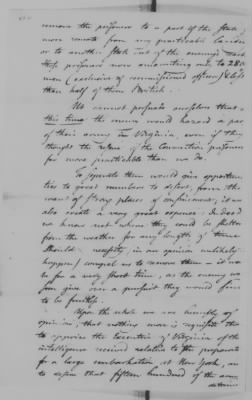 remove the prisoners to a part of the State,
more remote from any practicable
or to another State out of the enemy's reach
these prisoners now amounting only to 280
men (exclusive of commissioned officers) & less
than half of them British.
We cannot persuade ourselves that at
this time the enemy would hazard a part
of their army in Virginia, even if they
thought the rescue of the Convention prisoners
far more practicable than we do.
To separate them would give opportuni-
ties to great numbers to desert, from the
want of strong places of confinement; it w.d
also create a very great expence. Indeed
we know not where they could be shelter'd
from the weather for any length of time.
Should necessity, in our opinion unlikely to
happen, compel us to remove them - it wo.d
be for a very short time, as the enemy wo.d
soon give over a pursuit they would find
to be fruitless.
Upon the whole we are humbly of
opinion, that nothing more is requisite than
to apprize the Executive of Virginia of the
intelligence received relative to the preparations
for a large embarkation at New York, and
to desire that fifteen hundred of the arms